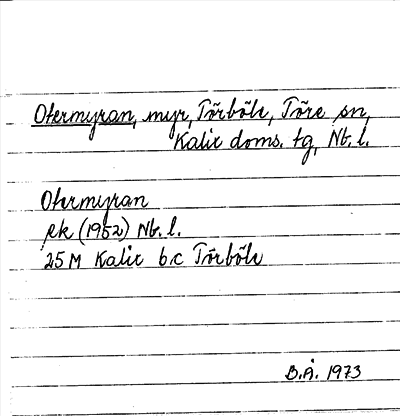 Otermyran, myr, Törböle, Töre sn,
Kalix doms. tg, Nb. l.
Otermyran
ek (1952) Nb. l.
25M Kalix b.c Törböle
B.Å. 1973